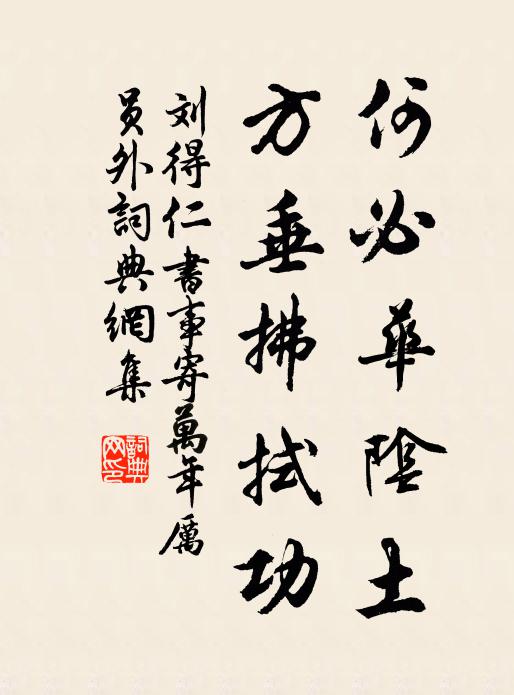 何必華陰土
方垂拂拭功
刘得仁書事寄萬年厲
員外詞典網集
詞典
网印